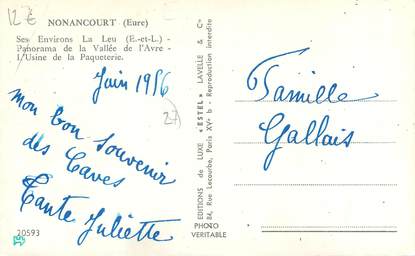 12 €
NONANCOURT (Eure)
Ses Environs La Leu (E.-et-L.) -
Panorama de la Vallée de l'Avre -
L'Usine de la Paqueterie.
Juin 1956
27
mon bon souvenir
des Caves
Tante Juliette
20593
EDITIONS de LUXE "ESTEL" LAVELLE & Cie
84, Rue Lecourbe, Paris XVe b - Reproduction interdite
PHOTO
VERITABLE
Famille
Gallais